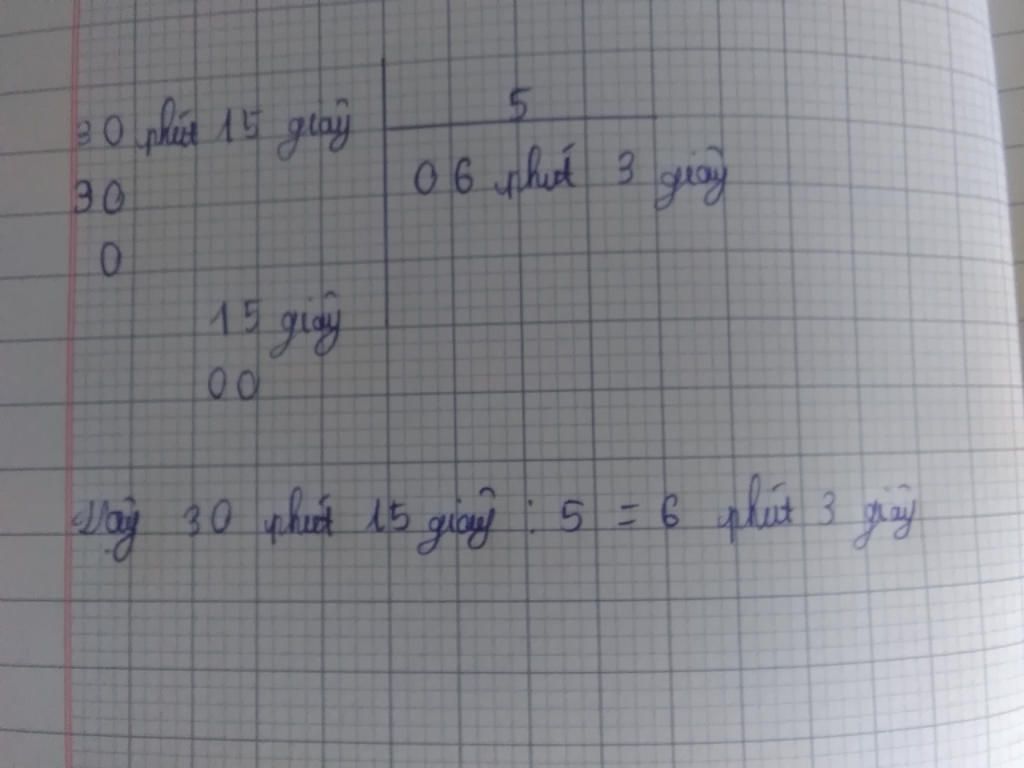 30 phút 15 giây 5
30 06 phút 3 giây
0
15 giây
00
Vậy 30 phút 15 giây : 5 = 6 phút 3 giây